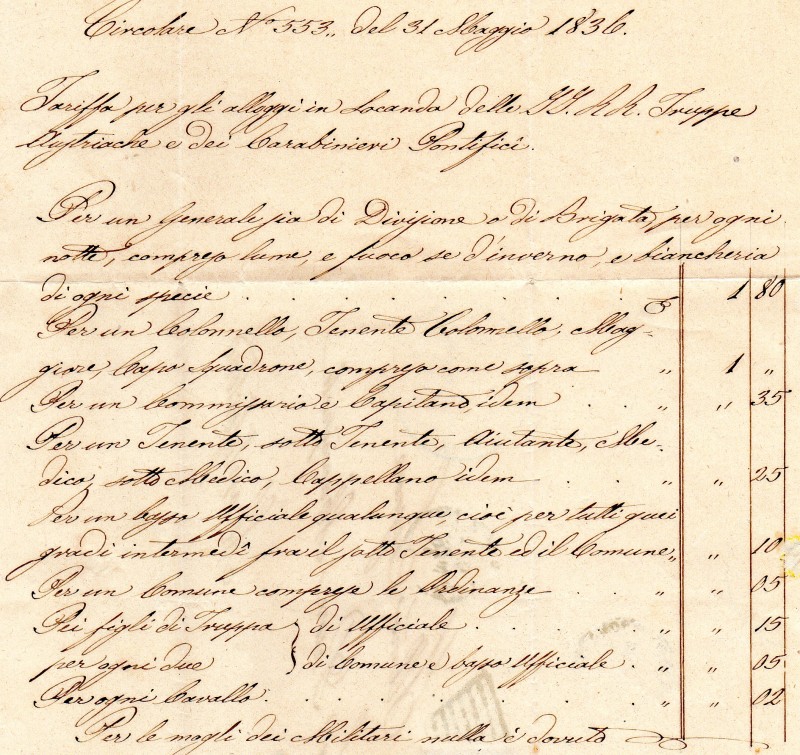 Circolare N.° 553,, del 31 Maggio 1836.
Tariffa per gli alloggi in Locanda delle II. RR. Truppe
Austriache e dei Carabinieri Pontifici.
Per un Generale sia di Divisione o di Brigata, per ogni
notte, compreso lume, e fuoco se d'inverno, e biancheria
di ogni specie . . . . . . . 1 80
Per un Colonnello, Tenente Colonnello, Mag-
giore, Capo Squadrone, compreso come sopra " 1 "
Per un Commissario e Capitano, idem . . " " 35
Per un Tenente, sotto Tenente, Aiutante, Me-
dico, sotto Medico, Cappellano idem . . " " 25
Per un basso Ufficiale qualunque, cioè per tutti quei
gradi intermedi fra il sotto Tenente ed il Comune " " 10
Per un Comune comprese le Ordinanze . . " " 05
Pei figli di Truppa } di Ufficiale . . . . " " 15
per ogni due } di Comune e basso Ufficiale . " " 05
Per ogni Cavallo . . . . . . . " " 02
Per le mogli dei Militari nulla è dovuto